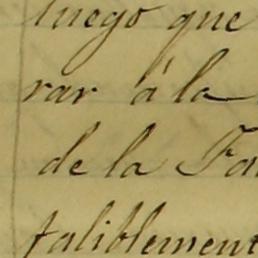 luego que
rar á la
de la Fa
faliblement